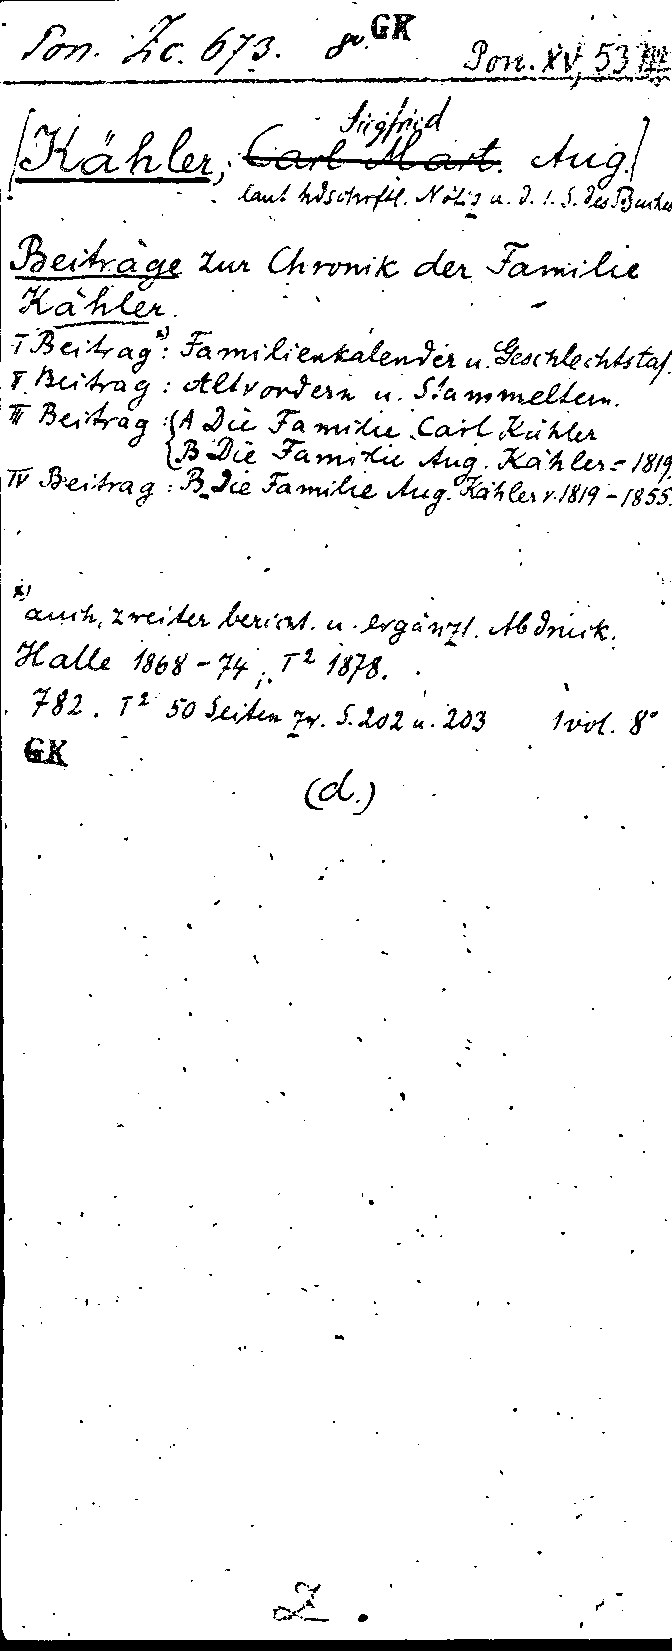 Pon. Zc. 673. 8v. GK Pon. XV, 53
Siegfried
[Kähler, Carl Mart. Aug.]
laut hdschrftl. Notiz u. d. 1. S. des Buches
Beiträge zur Chronik der Familie
Kähler.
I Beitrag x): Familienkalender u. Geschlechtstaf.
II Beitrag: Altvordern u. Stammeltern.
III Beitrag: {A Die Familie Carl Kähler
{B Die Familie Aug. Kähler = 1819.
IV Beitrag: B. Die Familie Aug. Kähler v. 1819 - 1855.
x) auch, zweiter bericht. u. ergänzt. Abdruck.
Halle 1868 - 74; I² 1878.
782. I² 50 Seiten zw. S. 202 u. 203 1 vol. 8°
GK
(d.)